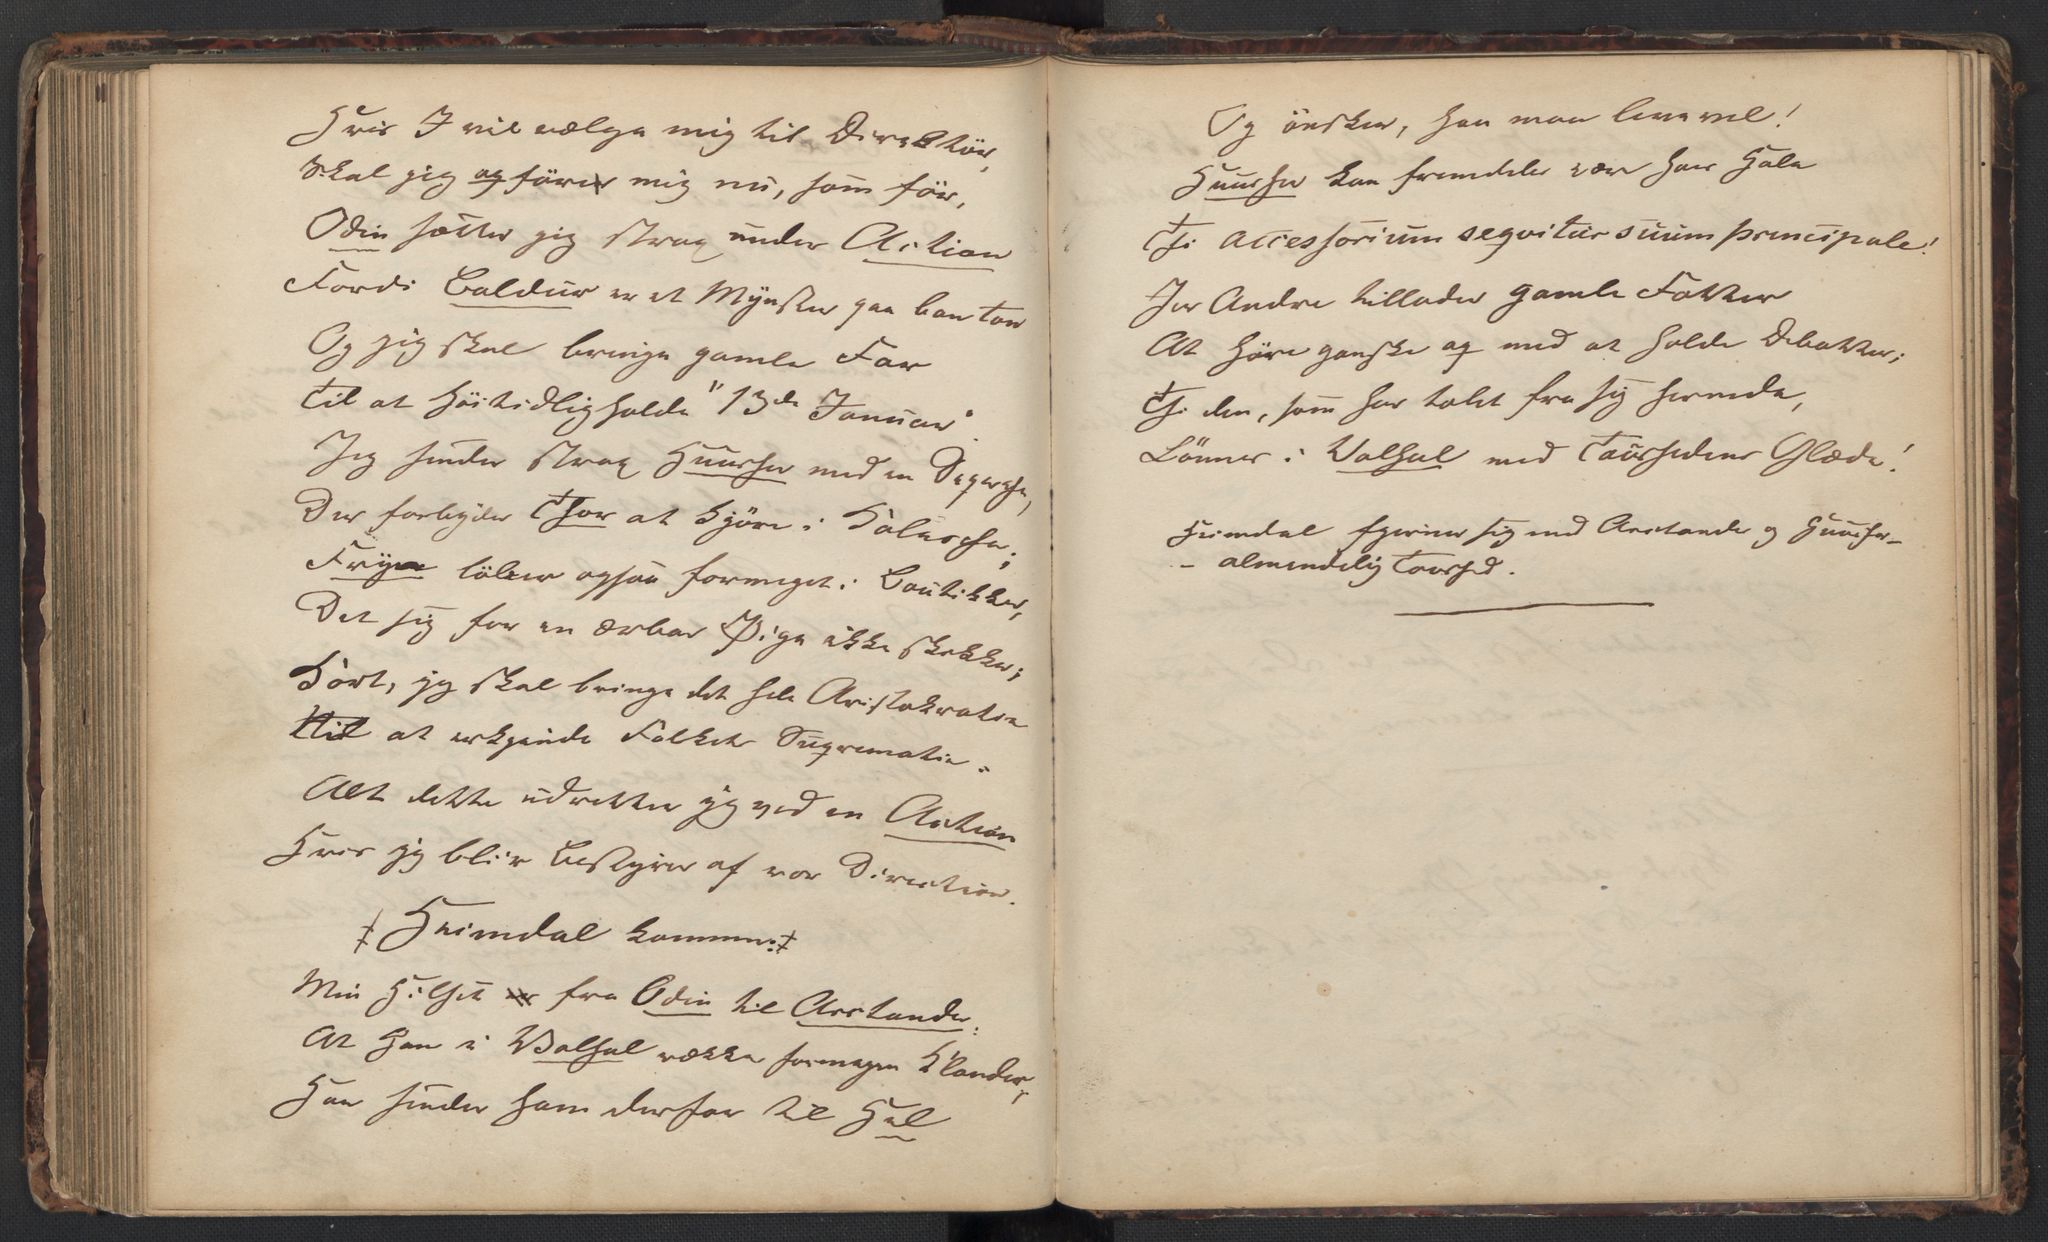 Hvis I vil vælge mig til Direktör,
Skal jeg opföre mig nu, som för,
Odin sætter jeg strax under Action
Fordi Baldur er et Mynster paa bon ton
Og jeg skal bringe gamle Far
Til at höitidligholde "13de Januar".
Jeg sender strax Huusher med en Depesche,
Der forbyder Thor at kjöre i Kalesche;
Freya löber ogsaa formeget i Boutikker,
Det sig for en ærbar Pige ikke skikker;
Kort, jeg skal bringe det hele Aristokratie
Til at erkjende Folkets Suprematie.
Alt dette udretter jeg ved en Action
Hvis jeg bliver Bestyrer af vor Direction.
Heimdal kommer:
Min Hilsen er fra Odin til Anstander,
At Han i Valhal vækker formegen Klander,
Han sender ham derfor til Hel
Og önsker, han maa leve vel!
Huusher kan fremdeles være hans Hale
Thi Accessorium seqvitur suum principale!
Jer Andre tillader gamle Fatter
At höre ganske op med at holde Debatter;
Thi den, som har talet fra sig hernede,
Lönnes i Valhal med Taushedens Glæde!
Heimdal fjerner sig med Anstander og Huusher –
– almindelig Taushed.